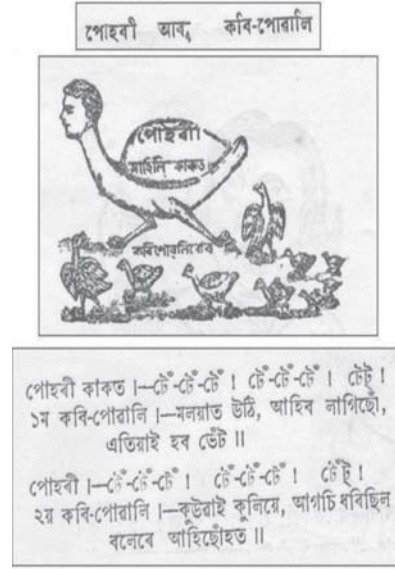 পোহৰী আৰু কবি-পোৱালি
পোহৰী
মাহিলি কাকত
কবিপোৱালিবোৰ
পোহৰী কাকত।—টেঁ-টেঁ-টেঁ ! টেঁ-টেঁ-টেঁ ! টেঁট্ !
১ম কবি-পোৱালি।—মলয়াত উঠি, আহিব লাগিছোঁ,
এতিয়াই হব ভেঁট ॥
পোহৰী।—টেঁ-টেঁ-টেঁ ! টেঁ-টেঁ-টেঁ ! টেঁট্ !
২য় কবি-পোৱালি।—কুউৱাই কুলিয়ে, আগচি ধৰিছিল
বনেৰে আহিছোঁহত ॥